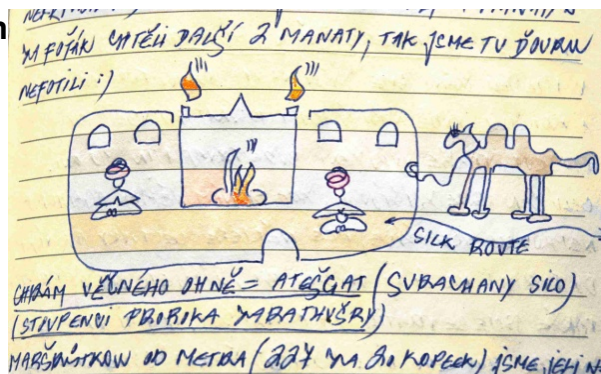 ZA FOŤÁK CHTĚLI DALŠÍ 2 MANATY, TAK JSME TU
NEFOTILI :)
SILK ROUTE
CHRÁM VĚČNÉHO OHNĚ = ATEŠGAT (SURACHANY SILO)
(STOUPENCI PROROKA ZARATHUŠRY)
MARŠRUTKOU OD METRA (227 ZA 20 KOPEEK) JSME JELI